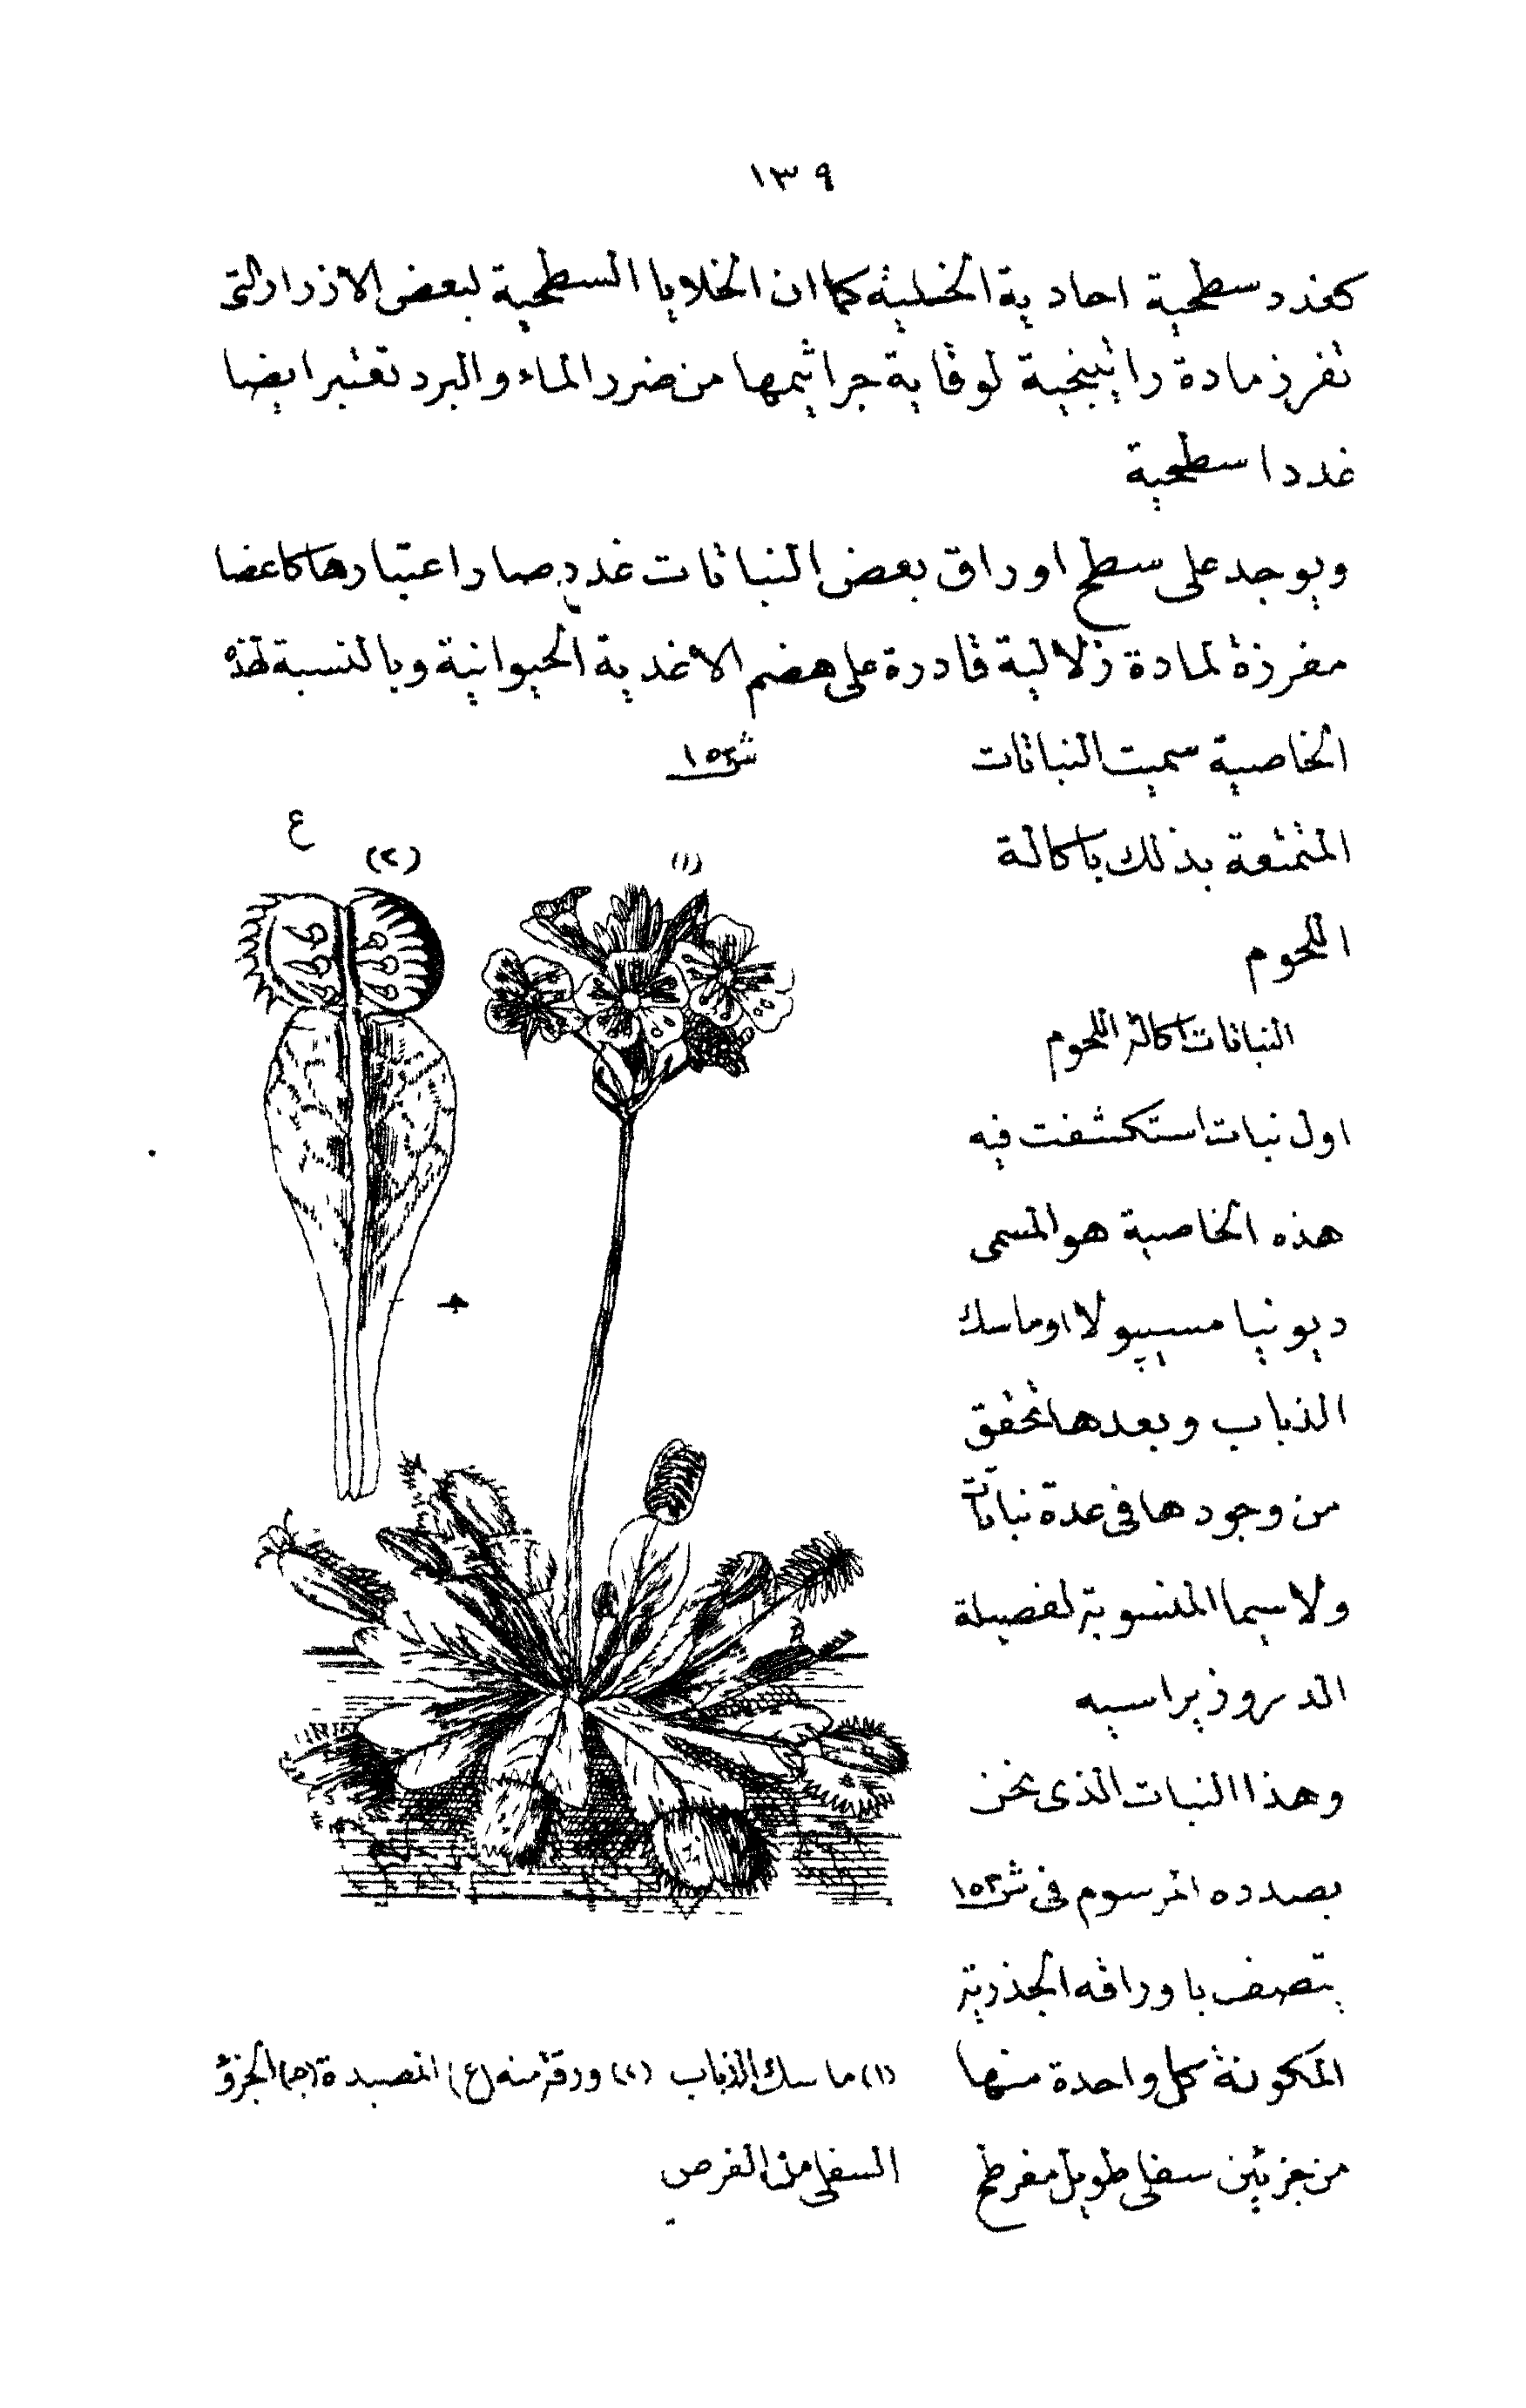 ١٣٩
كغدد سطحية احادية الخلية كما ان الخلايا السطحية لبعض الازرار التى
تفرز مادة راتينجية لوقاية جراثيمها من ضرر الماء والبرد تعتبر ايضا
غددا سطحية
ويوجد على سطح اوراق بعض النباتات غدد صار اعتبارها كاعضا
مفرزة لمادة زلالية قادرة على هضم الاغدية الحيوانية وبالنسبة لهذه
الخاصية سميت النباتات
المتمتعة بذلك باكالة
اللحوم
النباتات اكالة اللحوم
اول نبات استكشفت فيه
هذه الخاصية هو المسمى
ديونيا مسيپولا او ماسك
الذباب وبعدها تحقق
من وجودها فى عدة نباتات
ولاسيما المنسوبة لفصيلة
الدروزيراسيه
وهذا النبات الذى نحن
بصدده المرسوم فى ش١٥٢
يتصف باوراقه الجذرية
المكونة كل واحدة منها
من جزئين سفلى طويل مفرطح
ش١٥٢
ع
(٢)
(١)
ج
(١) ماسك الذباب (٢) ورقة منه (ع) المصيدة (ج) الجزؤ
السفلى من القرص